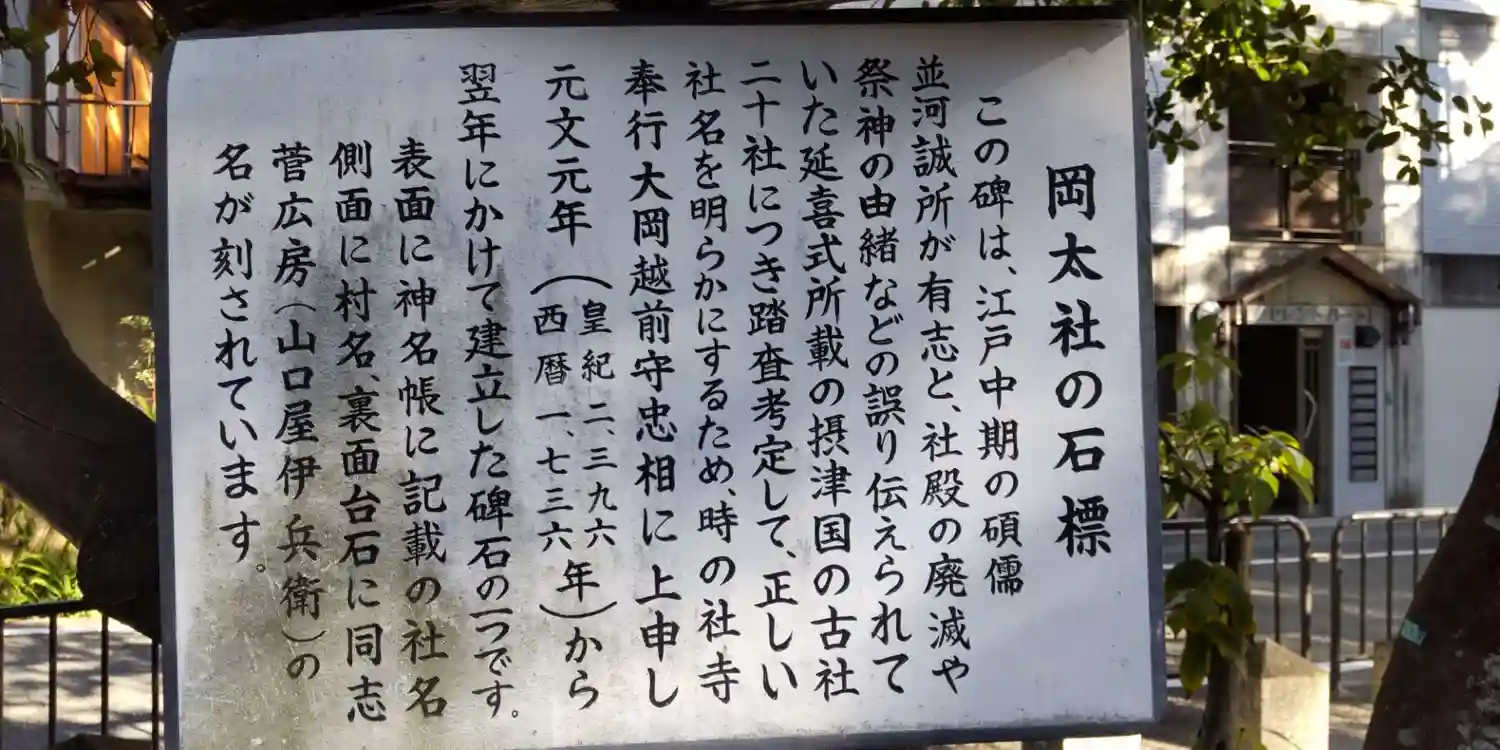 岡太社の石標
この碑は、江戸中期の碩儒
並河誠所が有志と、社殿の廃滅や
祭神の由緒などの誤り伝えられて
いた延喜式所載の摂津国の古社
二十社につき踏査考定して、正しい
社名を明らかにするため、時の社寺
奉行大岡越前守忠相に上申し
元文元年(皇紀二、三九六
西暦一、七三六年)から
翌年にかけて建立した碑石の一つです。
表面に神名帳に記載の社名
側面に村名、裏面台石に同志
菅広房(山口屋伊兵衛)の
名が刻されています。